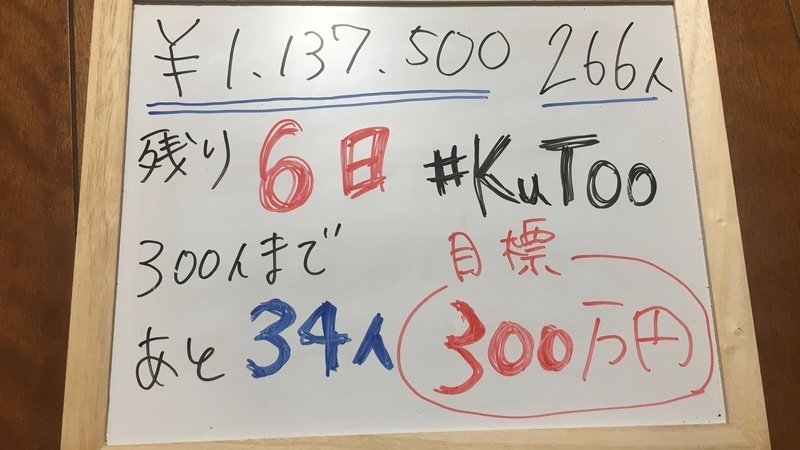 ¥1.137.500 266人
残り 6日 #KuToo
300人まで 目標
あと 34人 300万円